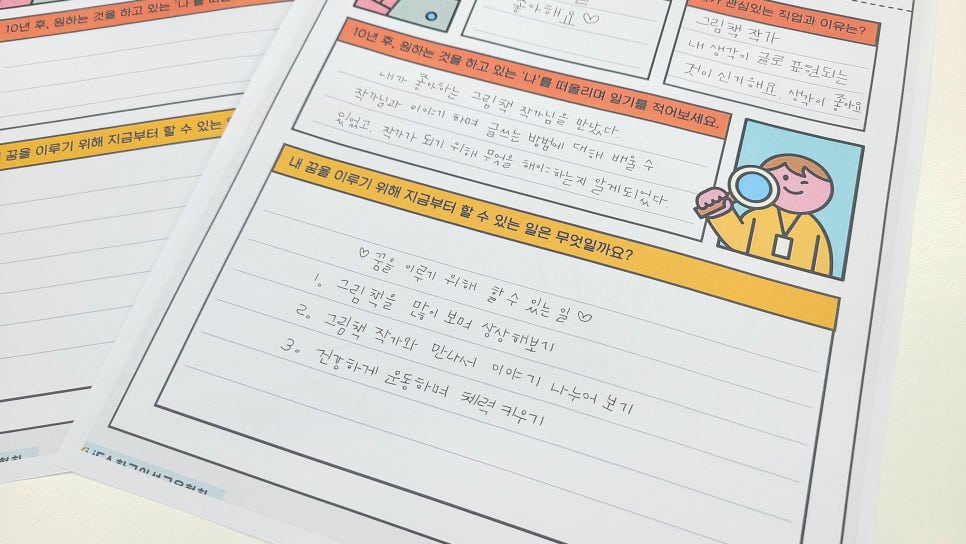 좋아해요 ♡
내가 관심있는 직업과 이유는?
그림책 작가
내 생각이 글로 표현되는
것이 신기해요. 생각이 좋아요
10년 후, 원하는 것을 하고 있는 '나'를 떠올리며 일기를 적어보세요.
내가 좋아하는 그림책 작가님을 만났다.
작가님과 이야기 하며 글쓰는 방법에 대해 배울 수
있었고, 작가가 되기 위해 무엇을 해야하는지 알게되었다.
내 꿈을 이루기 위해 지금부터 할 수 있는 일은 무엇일까요?
♡ 꿈을 이루기 위해 할 수 있는 일 ♡
1. 그림책을 많이 보며 상상해보기
2. 그림책 작가와 만나서 이야기 나누어 보기
3. 건강하게 운동하며 체력 키우기
10년 후, 원하는 것을 하고 있는 '나'를
꿈을 이루기 위해 지금부터 할 수 있는